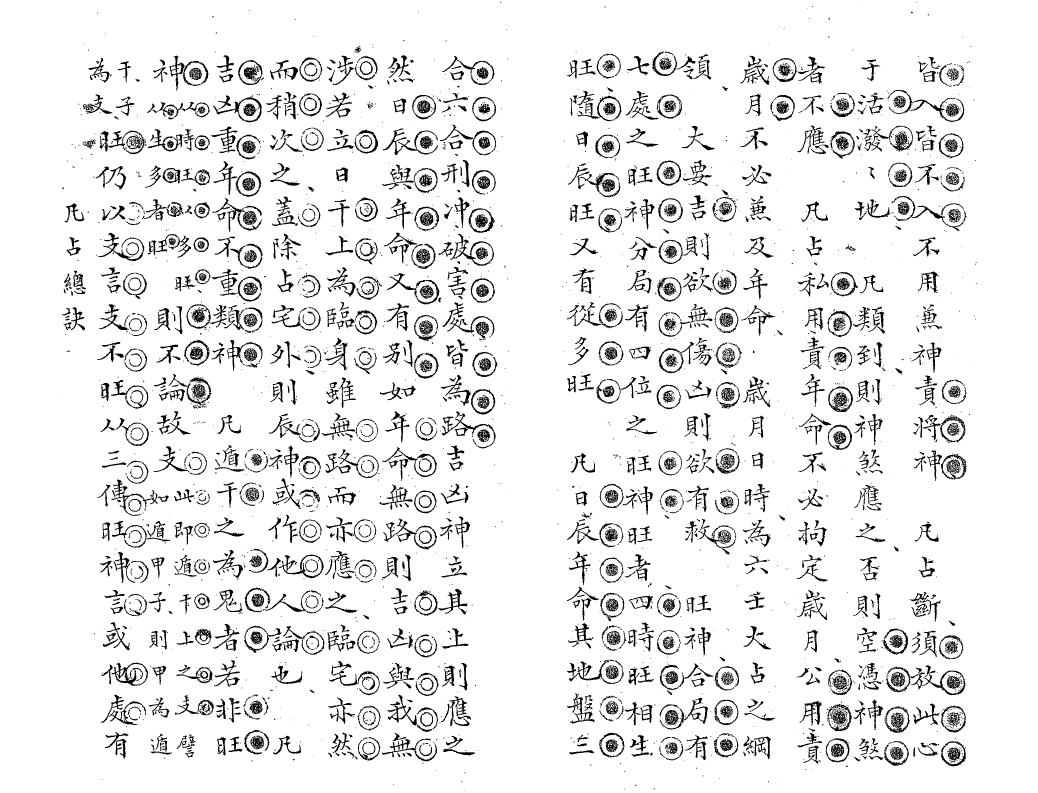 皆入皆不入不用兼神責將神　凡占斷須放此心
于活潑ヽ地　凡類到則神煞應之否則空憑神煞
者不應　凡占私用責年命不必拘定歲月公用責
歲月不必兼及年命　歲月日時為六壬大占之綱
領　大要吉則欲無傷凶則欲有救　旺神合局有
七處之旺神分局有四位之旺神旺者四時旺相生
旺隨日辰旺又有從多旺　凡日辰年命其地盤三
合六合刑冲破害處皆為路吉凶神立其上則應之
然日辰與年命又有別如年命無路則吉凶與我無
涉若立日干上為臨身雖無路而亦應之臨宅亦然
而稍次之蓋除占宅外則辰神或作他人論也　凡
吉凶重年命不重類神　凡遁干之為鬼者若非旺
神从時旺以多旺从生多者旺則不論故支此即遁干上之支譬如遁甲子則甲為遁
干子為支旺仍以支言支不旺从三傳旺神言或他處有
凡占總訣